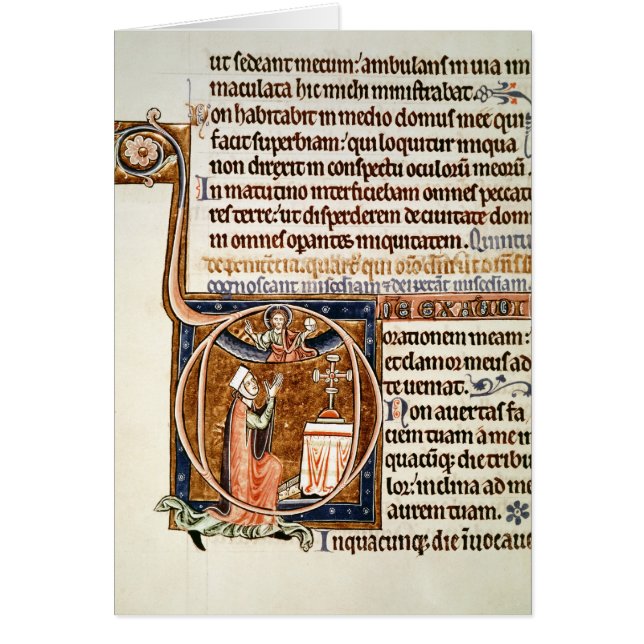 ut sedeant mecum: ambulans in uia im
maculata hic michi ministrabat.
Non habitabit in medio domus mee qui
facit superbiam: qui loquitur iniqua
non direxit in conspectu oculorū meorū.
In matutino interficiebam omnes peccato
res terre: ut disperderem de ciuitate dom
in omnes operantes iniquitatem. Quintu
de penitētia.
cognoscant
NE EXAUDI
orationem meam:
et clamor meus ad
te ueniat.
Non auertas fa
ciem tuam a me in
quacūq; die tribu
lor: inclina ad me
aurem tuam.
In quacunq; die inuocaue